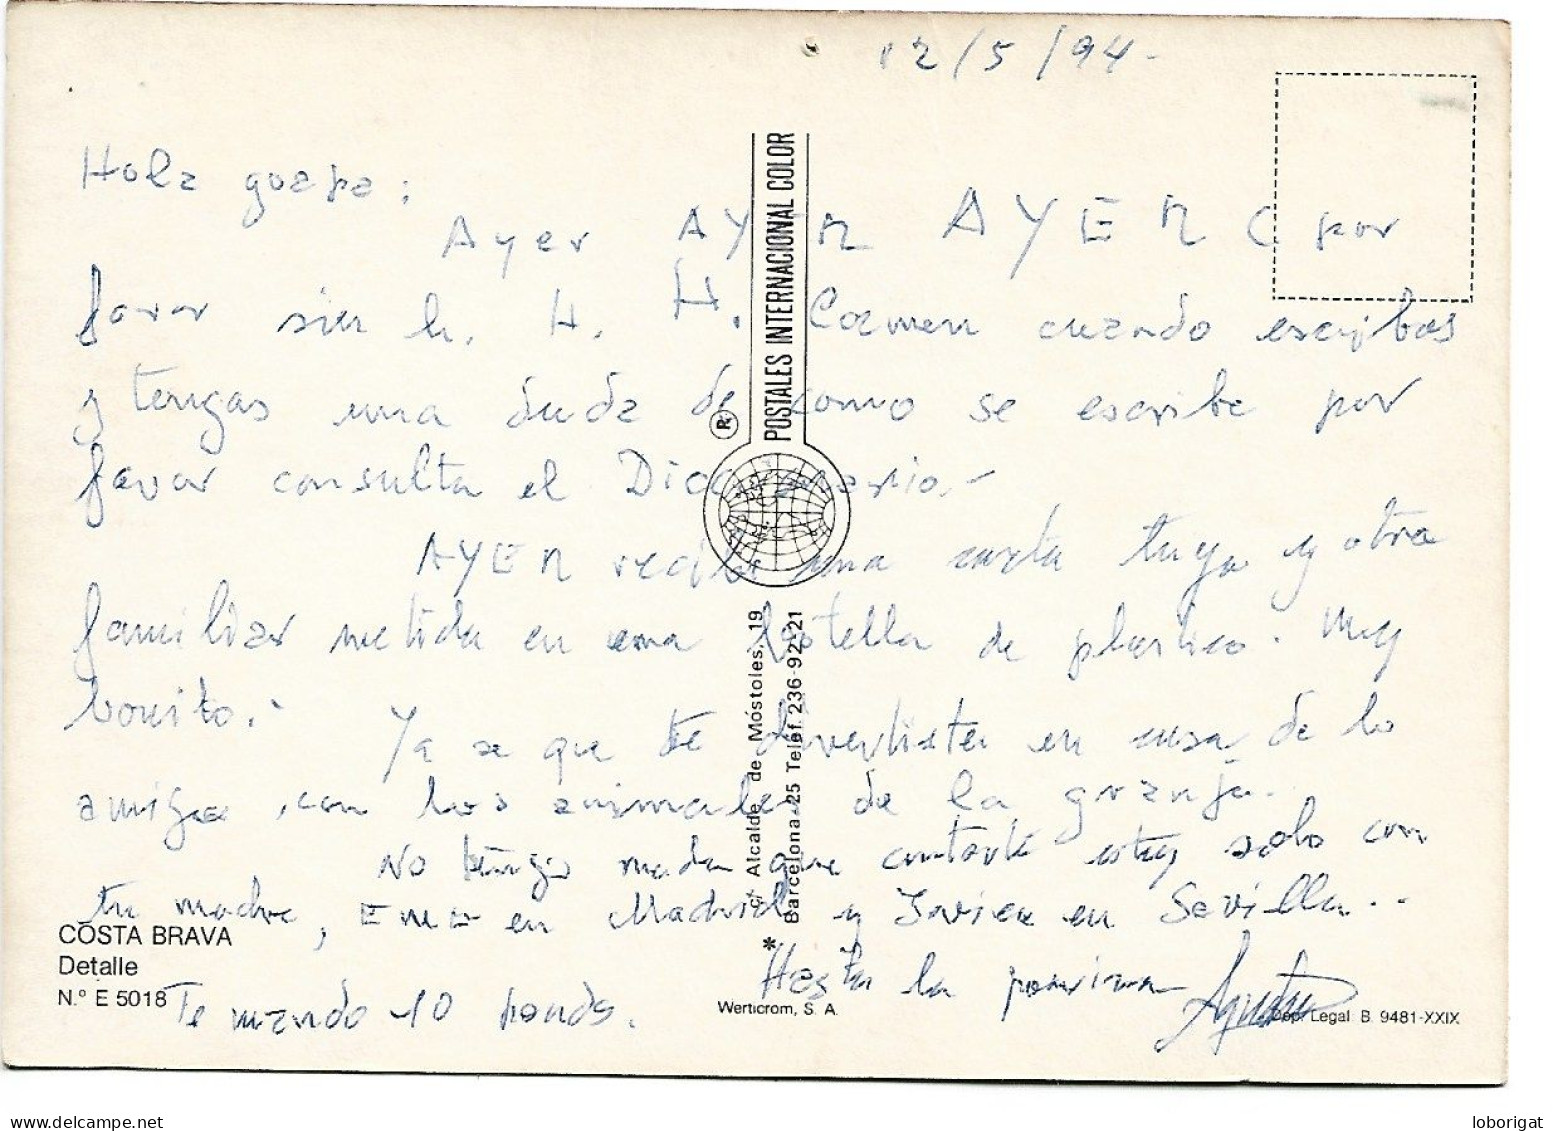 12/5/94.-
Hola guapa:
Ayer AYER AYER C por
favor sin h. H. H. Carmen cuando escribas
y tengas una duda de como se escribe por
favor consulta el Diccionario.-
AYER recibí una carta tuya y otra
familiar metida en una botella de plastico. Muy
bonito.-
Ya se que te divertiste en casa de la
amiga, con los animales de la granja.
No tengo nada que contarte estoy solo con
tu madre, en Madrid y Javier en Sevilla...
Hasta la proxima
Te mando 10
COSTA BRAVA
Detalle
N.º E 5018
POSTALES INTERNACIONAL COLOR
R
c/ Alcalde de Móstoles, 19
Barcelona-25 Teléf. 236-92-21
*
Werticrom, S. A.
Dep. Legal B. 9481-XXIX
loborigat